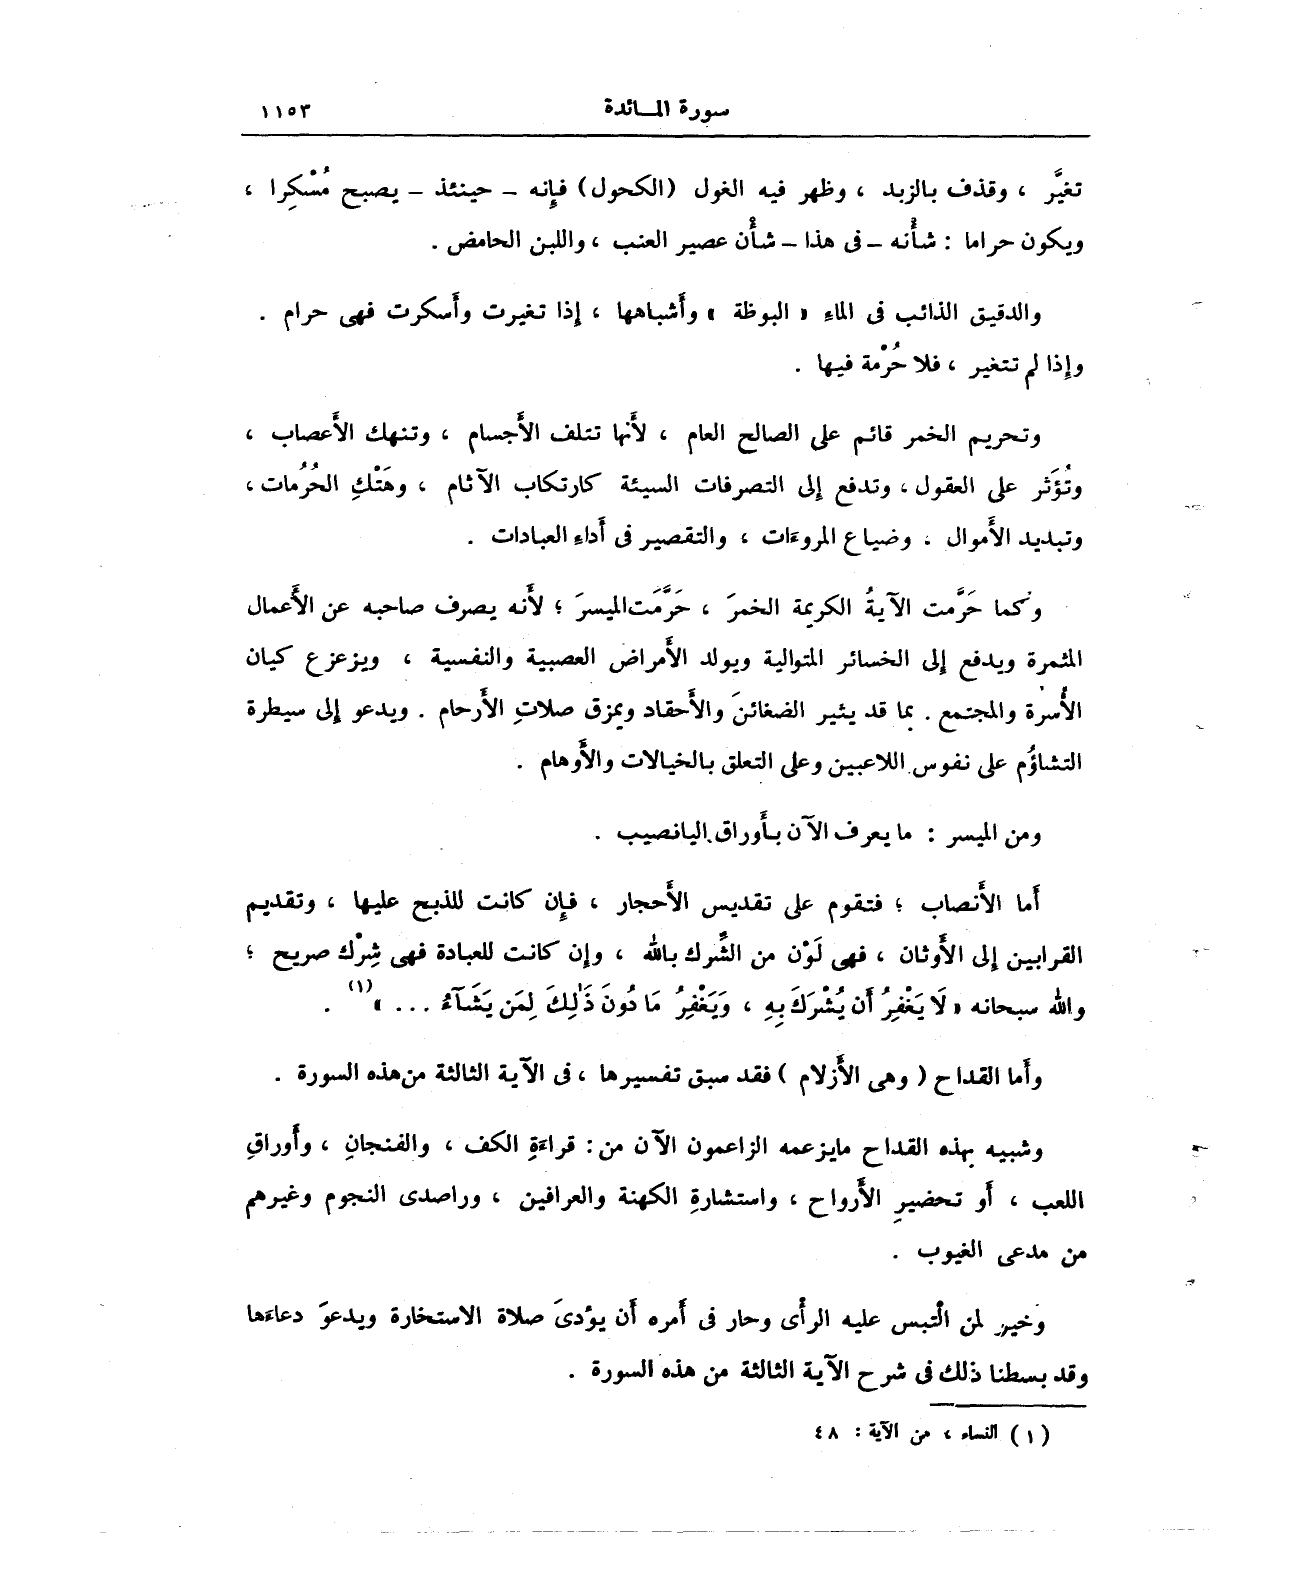 سورة المائدة ١١٥٣
تغيَّر ، وقذف بالزبد ، وظهر فيه الغول (الكحول) فإنه – حينئذ – يصبح مُسْكِرا ،
ويكون حراما : شأْنه – فى هذا – شأْن عصير العنب ، واللبن الحامض .
والدقيق الذائب فى الماء « البوظة » وأَشباهها ، إذا تغيرت وأَسكرت فهى حرام .
وإذا لم تتغير ، فلا حُرْمة فيها .
وتحريم الخمر قائم على الصالح العام ، لأَنها تتلف الأَجسام ، وتنهك الأَعصاب ،
وتُؤَثر على العقول ، وتدفع إلى التصرفات السيئة كارتكاب الآثام ، وهَتْكِ الحُرُمات ،
وتبديد الأَموال . وضياع المروءَات ، والتقصير فى أَداءِ العبادات .
وكما حَرَّمت الآيةُ الكريمة الخمرَ ، حَرَّمَت الميسرَ ؛ لأَنه يصرف صاحبه عن الأَعمال
المثمرة ويدفع إلى الخسائر المتوالية ويولد الأَمراض العصبية والنفسية ، ويزعزع كيان
الأُسرة والمجتمع . بما قد يثير الضغائنَ والأَحقاد ويمزق صلاتِ الأَرحام . ويدعو إلى سيطرة
التشاؤُم على نفوس اللاعبين وعلى التعلق بالخيالات والأَوهام .
ومن الميسر : ما يعرف الآن بأَوراق اليانصيب .
أَما الأَنصاب ؛ فتقوم على تقديس الأَحجار ، فإن كانت للذبح عليها ، وتقديم
القرابين إلى الأَوثان ، فهى لَوْن من الشِّرك بالله ، وإن كانت للعبادة فهى شِرْك صريح ؛
والله سبحانه « لَا يَغْفِرُ أَن يُشْرَكَ بِهِ ، وَيَغْفِرُ مَا دُونَ ذَٰلِكَ لِمَن يَشَآءُ ... »(١) .
وأَما القداح ( وهى الأَزلام ) فقد سبق تفسيرها ، فى الآية الثالثة من هذه السورة .
وشبيه بهذه القداح مايزعمه الزاعمون الآن من : قراءَةِ الكف ، والفنجانِ ، وأَوراقِ
اللعب ، أَو تحضيرِ الأَرواح ، واستشارةِ الكهنة والعرافين ، وراصدى النجوم وغيرهم
من مدعى الغيوب .
وخير لمن الْتبس عليه الرأْى وحار فى أَمره أَن يؤدىَ صلاة الاستخارة ويدعوَ دعاءَها
وقد بسطنا ذلك فى شرح الآية الثالثة من هذه السورة .
(١) النساء ، من الآية : ٤٨